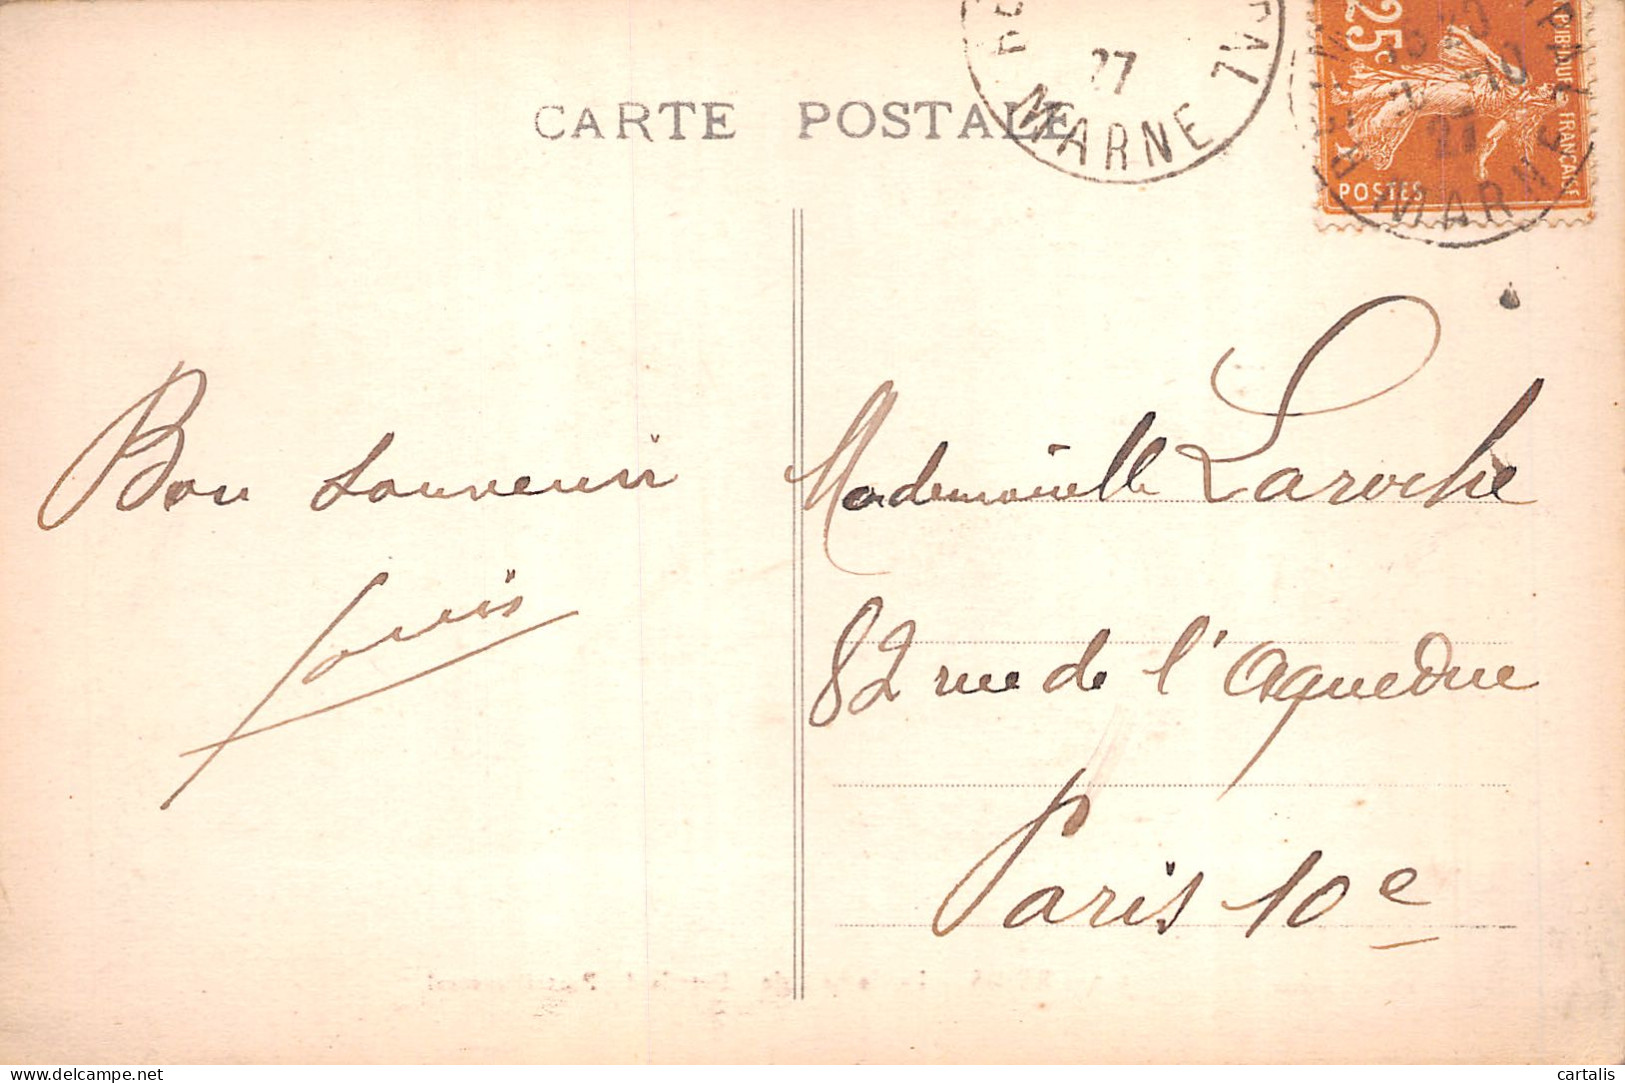 CARTE POSTALE
27
MARNE
25c
POSTES
FRANÇAISE
27
MARNE
Bon souvenir
Louis
Mademoiselle Laroche
82 rue de l'Aqueduc
Paris 10e
delcampe.net
cartalis